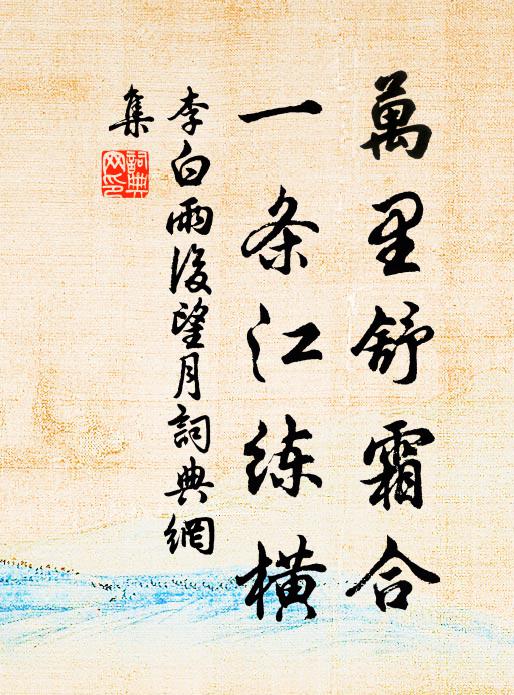 萬里舒霜合
一条江练橫
李白雨後望月詞典網
集
詞典
网印